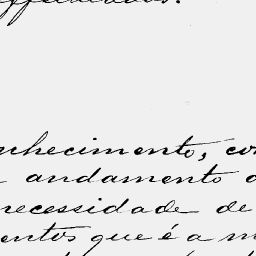 nhecimento, co
andamento
necessidade de
entos que é a m